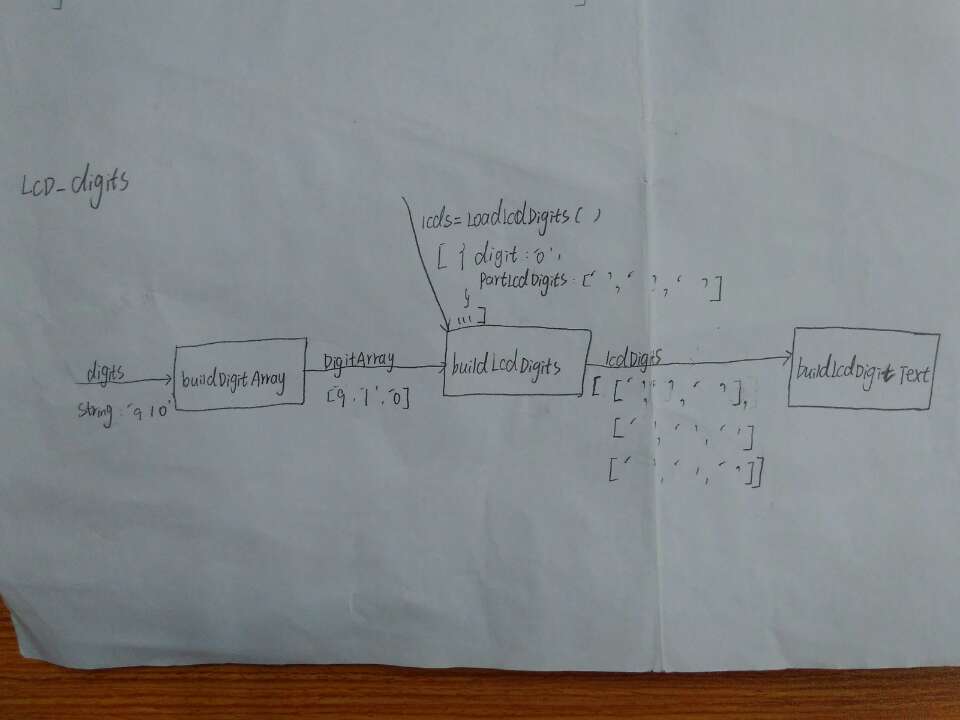 LCD_digits
lcds=LoadLcdDigits( )
[ { digit:'0',
partLcdDigits: [' ', ' ', ' ']
}
...]
digits
String: '910'
buildDigitArray
DigitArray
['9','1','0']
buildLcdDigits
lcdDigits
[ [' ', ' ', ' '],
[' ', ' ', ' ']
[' ', ' ', ' ']]
buildLcdDigitText